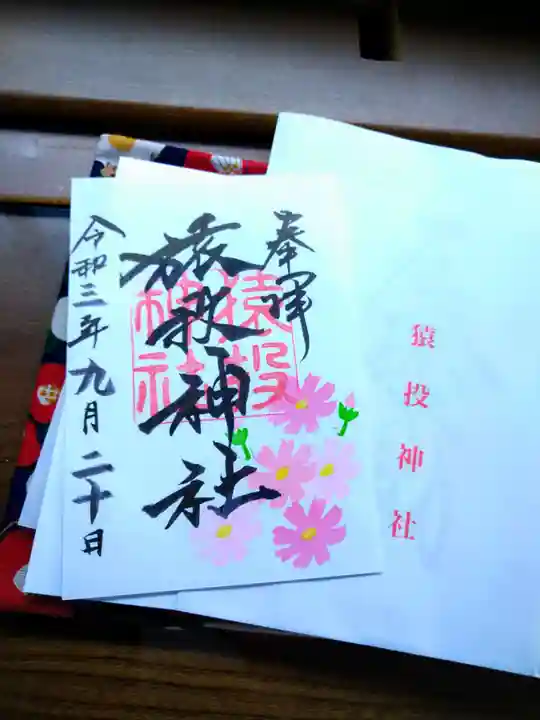 猿投神社
奉拝
猿投神社
猿投神社
令和三年九月二十日